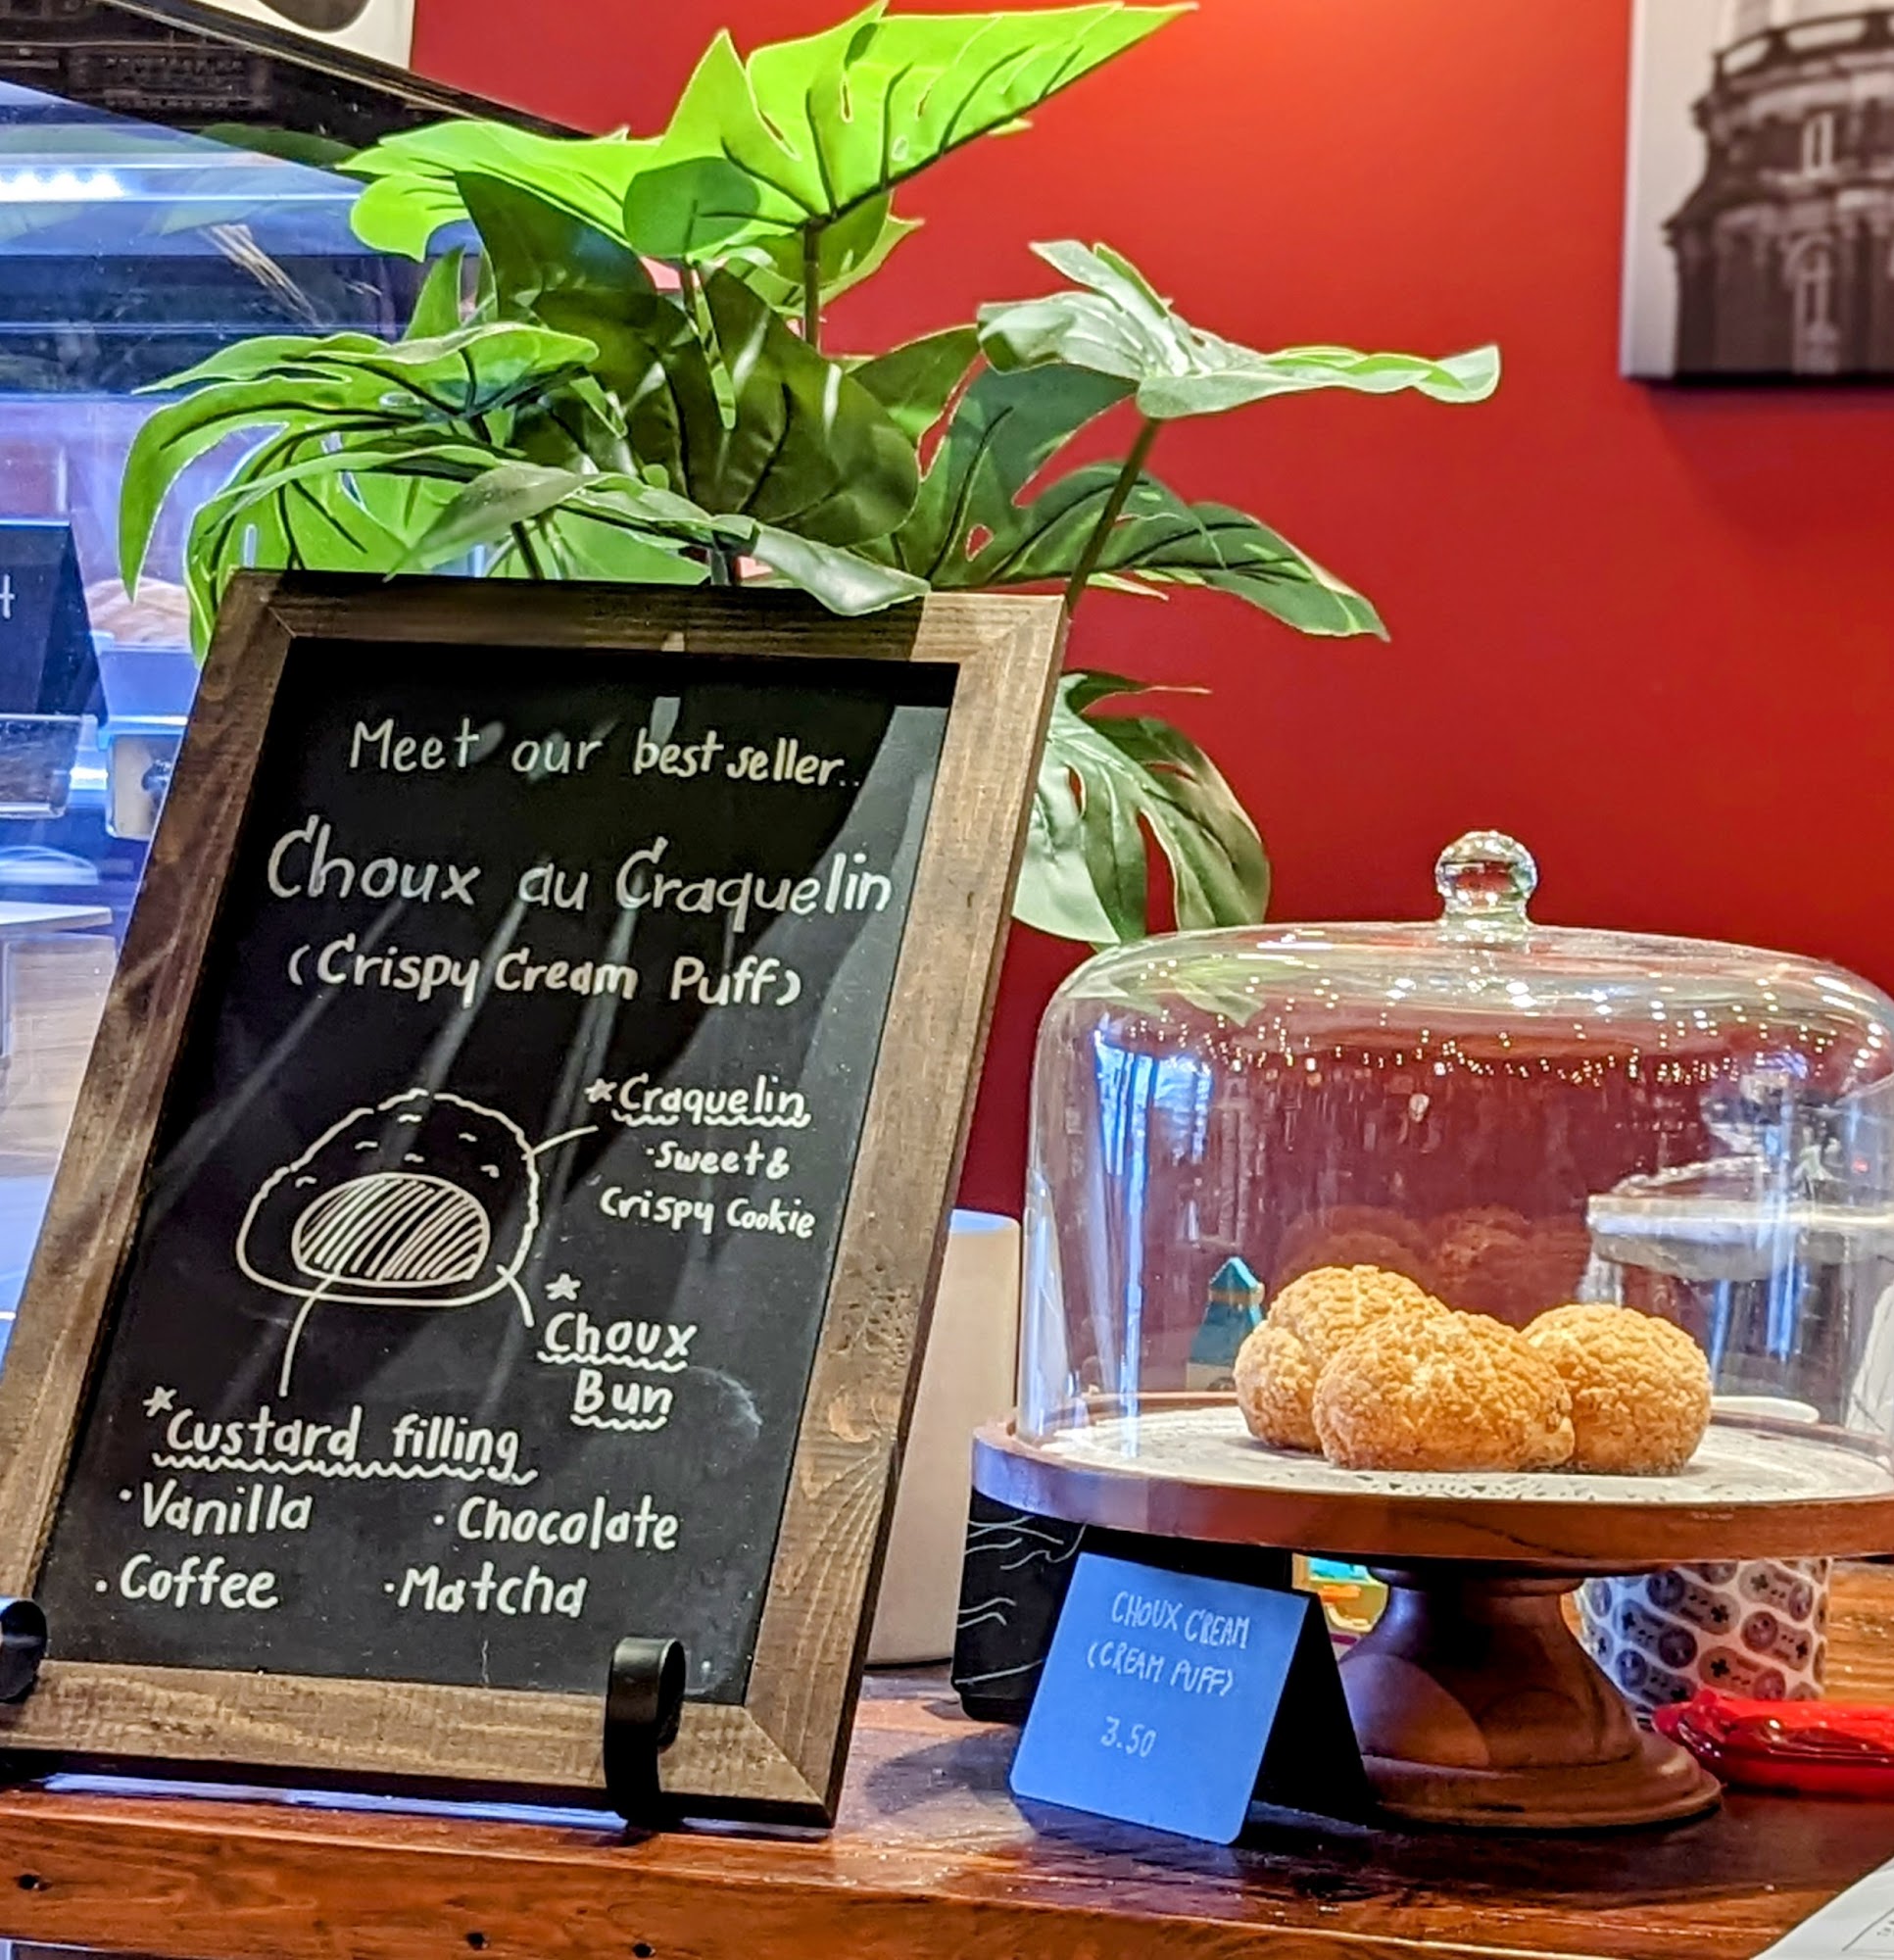 Meet our best seller..
Choux au Craquelin
(Crispy Cream Puff)
*Craquelin
·Sweet &
Crispy Cookie
*
Choux
Bun
*Custard filling
·Vanilla ·Chocolate
·Coffee ·Matcha
CHOUX CREAM
(CREAM PUFF)
3.50